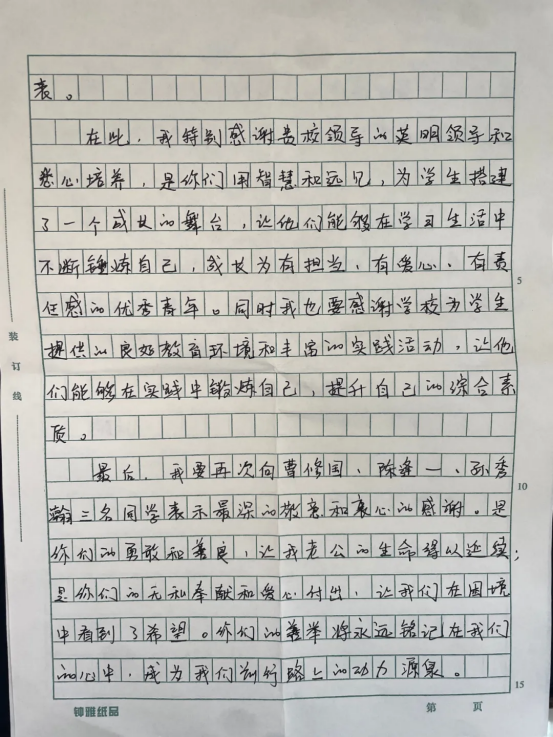 表。
在此，我特别感谢贵校领导的英明领导和
悉心培养，是你们用智慧和远见，为学生搭建
了一个成长的舞台，让他们能够在学习生活中
不断锤炼自己，成长为有担当、有爱心、有责
5
任感的优秀青年。同时我也要感谢学校为学生
提供的良好教育环境和丰富的实践活动，让他
们能够在实践中锻炼自己，提升自己的综合素
质。
最后，我要再次向曹修国、陈逢一、孙秀
10
翰三名同学表示最深的敬意和衷心的感谢。是
你们的勇敢和善良，让我老公的生命得以延续；
是你们的无私奉献和爱心付出，让我们在困境
中看到了希望。你们的善举将永远铭记在我们
的心中，成为我们前行路上的动力源泉。
15
装订线
钟雅纸品
第 页